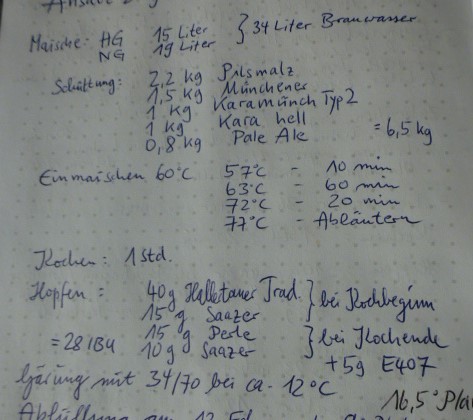 Maische: HG 15 Liter } 34 Liter Brauwasser
NG 19 Liter
Schüttung: 2,2 kg Pilsmalz
1,5 kg Münchener
1 kg Karamünch Typ 2
1 kg Kara hell
0,8 kg Pale Ale = 6,5 kg
Einmaischen 60°C 57°C - 10 min
63°C - 60 min
72°C - 20 min
77°C - Abläutern
Kochen: 1 Std.
Hopfen: 40g Hallertauer Trad. } bei Kochbeginn
15g Saazer
=28 IBU 15g Perle } bei Kochende
10g Saazer
+5g E407
Gärung mit 34/70 bei ca. 12°C
16,5°